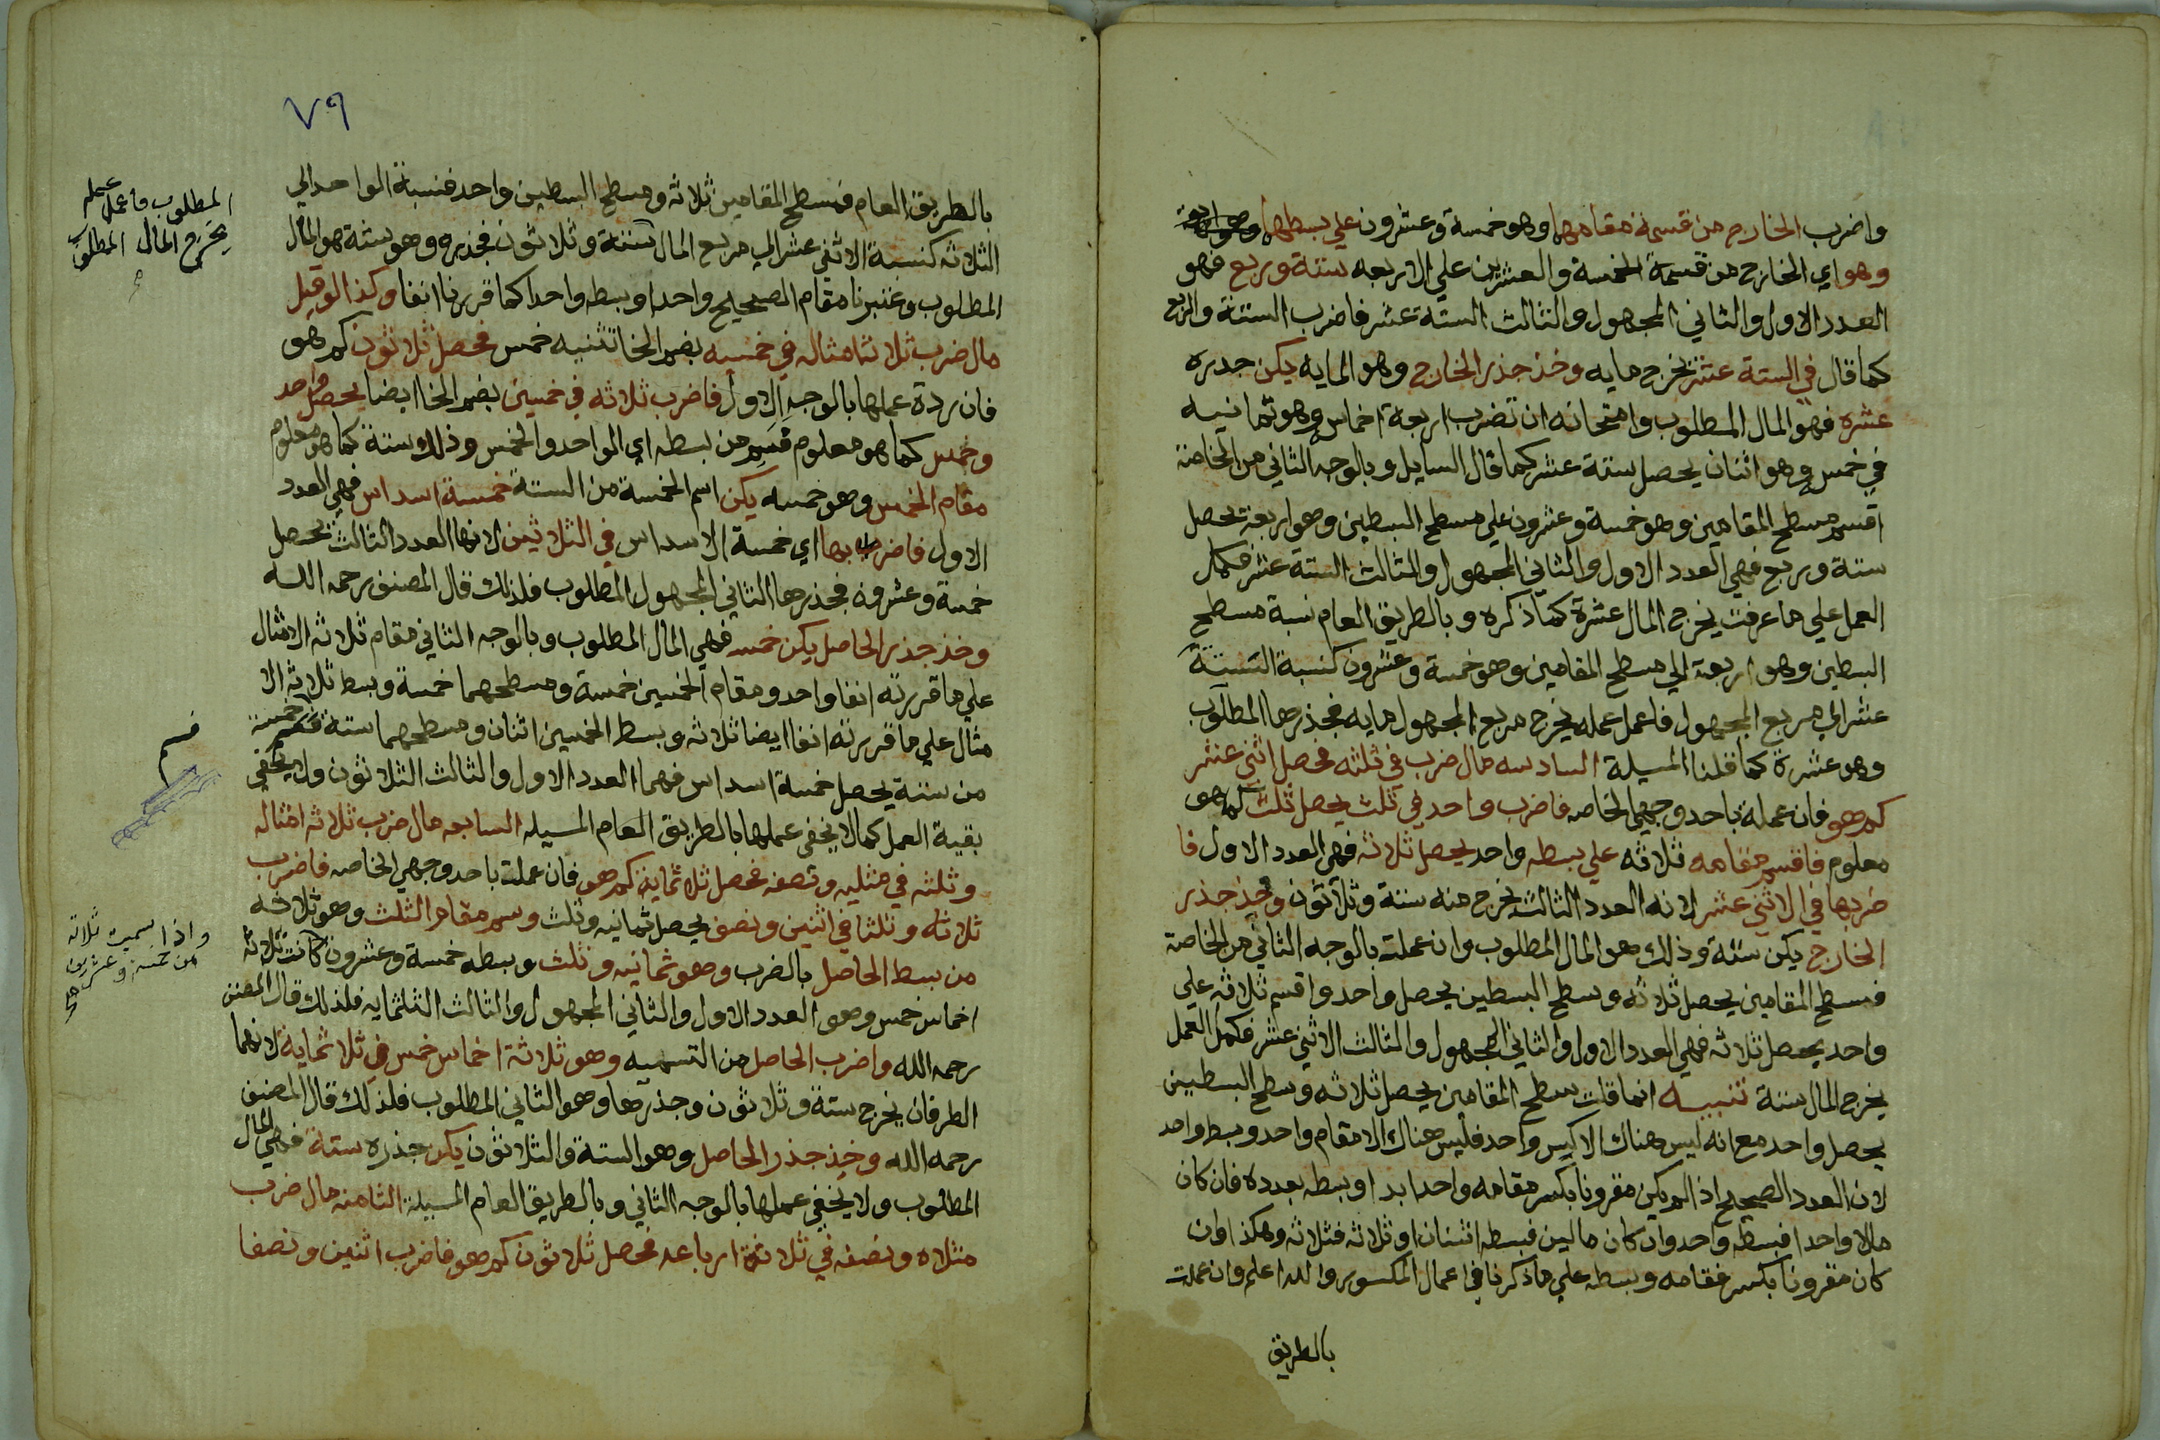 واضرب الخارج من قسمة مقامها وهو خمسة وعشرون علي بسطها
وهو اي الخارج من قسمة الخمسة والعشرين علي الاربعه ستة وربع فهو
العدد الاول والثاني المجهول والثالث الستة عشر فاضرب الستة والربع
كما قال في الستة عشر يخرج مايه وخذ جذر الخارج وهو المايه يكن جدره
عشره فهو المال المطلوب وامتحانه ان تضرب اربعة اخماس وهو ثمانيه
في خمس وهو اثنان يحصل ستة عشر كما قال السايل وبالوجه الثاني من الخاصة
اقسم مسطح المقامين وهو خمسة وعشرون علي مسطح البسطين وهو اربعة يحصل
ستة وربع فهي العدد الاول والثاني المجهول والثالث الستة عشر فكمل
العمل علي ما عرفت يخرج المال عشرة كما ذكره وبالطريق العام نسبة مسطح
البسطين وهو اربعة الي مسطح المقامين وهو خمسة وعشرون كنسبة الستة
عشر الي مربع المجهول فاعمل عمله يخرج مربع المجهول مايه فجذرها المطلوب
وهو عشرة كما قلنا المسيلة السادسه مال ضرب في ثلثه فحصل اثني عشر
كم هو فان عملة باحد وجهي الخاصه فاضرب واحد في ثلث يحصل ثلث كما هو
معلوم فاقسم مقامه ثلاثه علي بسطه واحد يحصل ثلاثه فهي العدد الاول فا
ضربها في الاثني عشر لانه العدد الثالث يخرج منه ستة وثلاثون وخذ جذر
الخارج يكن ستة وذلك هو المال المطلوب وان عملت بالوجه الثاني من الخاصة
فسطح المقامين يحصل ثلاثه وسطح البسطين يحصل واحد واقسم ثلاثه علي
واحد يحصل ثلاثه فهي العدد الاول والثاني المجهول والثالث الاثني عشر فكمل العمل
يخرج المال ستة تنبيه انما قلت سطح المقامين يحصل ثلاثه وسطح البسطين
يحصل واحد مع انه ليس هناك الا كسر واحد فليس هناك الا مقام واحد وبسط واحد
لان العدد الصحيح اذا لم يكن مقرونا بكسر مقامه واحد ابدا وبسطه بعدده فان كان
مالا واحدا فبسطه واحد وان كان مالين فبسطه اثنان او ثلاثه فثلاثه وهكذا وان
كان مقرونا بكسر فمقامه وبسطه علي ما ذكرنا في اعمال الكسور والله اعلم وان عملت
بالطريق
٧٩
بالطريق العام فمسطح المقامين ثلاثه ومسطح البسطين واحد فنسبة الواحد الي
الثلاثه كنسبة الاثني عشر الي مربع المال ستة وثلاثون فجذره وهو ستة هو المال
المطلوب وعتبرنا مقام الصحيح واحدا وبسطه واحدا كما قررنا انفا وكذا لو قيل
مال ضرب ثلاثا مثاله في خمسيه بضم الخا تثنيه خمس فحصل ثلاثون كم هو
فان ردة عملها بالوجه الاول فاضرب ثلاثه في خمسين بضم الخا ايضا يحصل واحد
وخمس كما هو معلوم فسم من بسطه اي الواحد والخمس وذلك ستة كما هو معلوم
مقام الخمس وهو خمسه يكن اسم الخمسة من الستة خمسة اسداس فهي العدد
الاول فاضرب بها اي خمسة الاسداس في الثلاثين لانها العدد الثالث يحصل
خمسة وعشرون فجذرها الثاني المجهول المطلوب فلذلك قال المصنف رحمه الله
وخذ جذر الحاصل يكن خمسه فهي المال المطلوب وبالوجه الثاني مقام ثلاثه الامثال
علي ما قررته انفا واحد ومقام الخمسين خمسة ومسطحهما خمسة وبسط ثلاثه الا
مثال علي ما قررته انفا ايضا ثلاثه وبسط الخمسين اثنان ومسطحهما ستة فسم خمسة
من ستة يحصل خمسة اسداس فهما العدد الاول والثالث الثلاثون ولا يخفي
بقية العمل كما لا يخفي عملها بالطريق العام المسيله السابعه مال ضرب ثلاثه امثاله
وثلثه في مثليه ونصفه فحصل ثلاثمايه كم هو فان عملت باحد وجهي الخاصه فاضرب
ثلاثه وثلثا في اثنين ونصف يحصل ثمانيه وثلث وسم مقام الثلث وهو ثلاثه
من بسط الحاصل بالضرب وهو ثمانيه وثلث وبسطه خمسة وعشرون كانت ثلاثة
اخماس خمس وهو العدد الاول والثاني المجهول والثالث الثلثمايه فلذلك قال المصنف
رحمه الله واضرب الحاصل من التسميه وهو ثلاثة اخماس خمس في ثلاثمايه لانهما
الطرفان يخرج ستة وثلاثون وجذرها وهو الثاني المطلوب فلذلك قال المصنف
رحمه الله وخذ جذر الحاصل وهو الستة والثلاثون يكن جذره ستة فهي المال
المطلوب ولا يخفي عملها بالوجه الثاني وبالطريق العام المسيلة الثامنه مال ضرب
مثلاه ونصفه في ثلاثة ارباعه فحصل ثلاثون كم هو فاضرب اثنين ونصفا
المطلوب فاعمل عمله
يخرج المال المطلوب
قسم
واذا سميت ثلاثة
من خمسة وعشرين